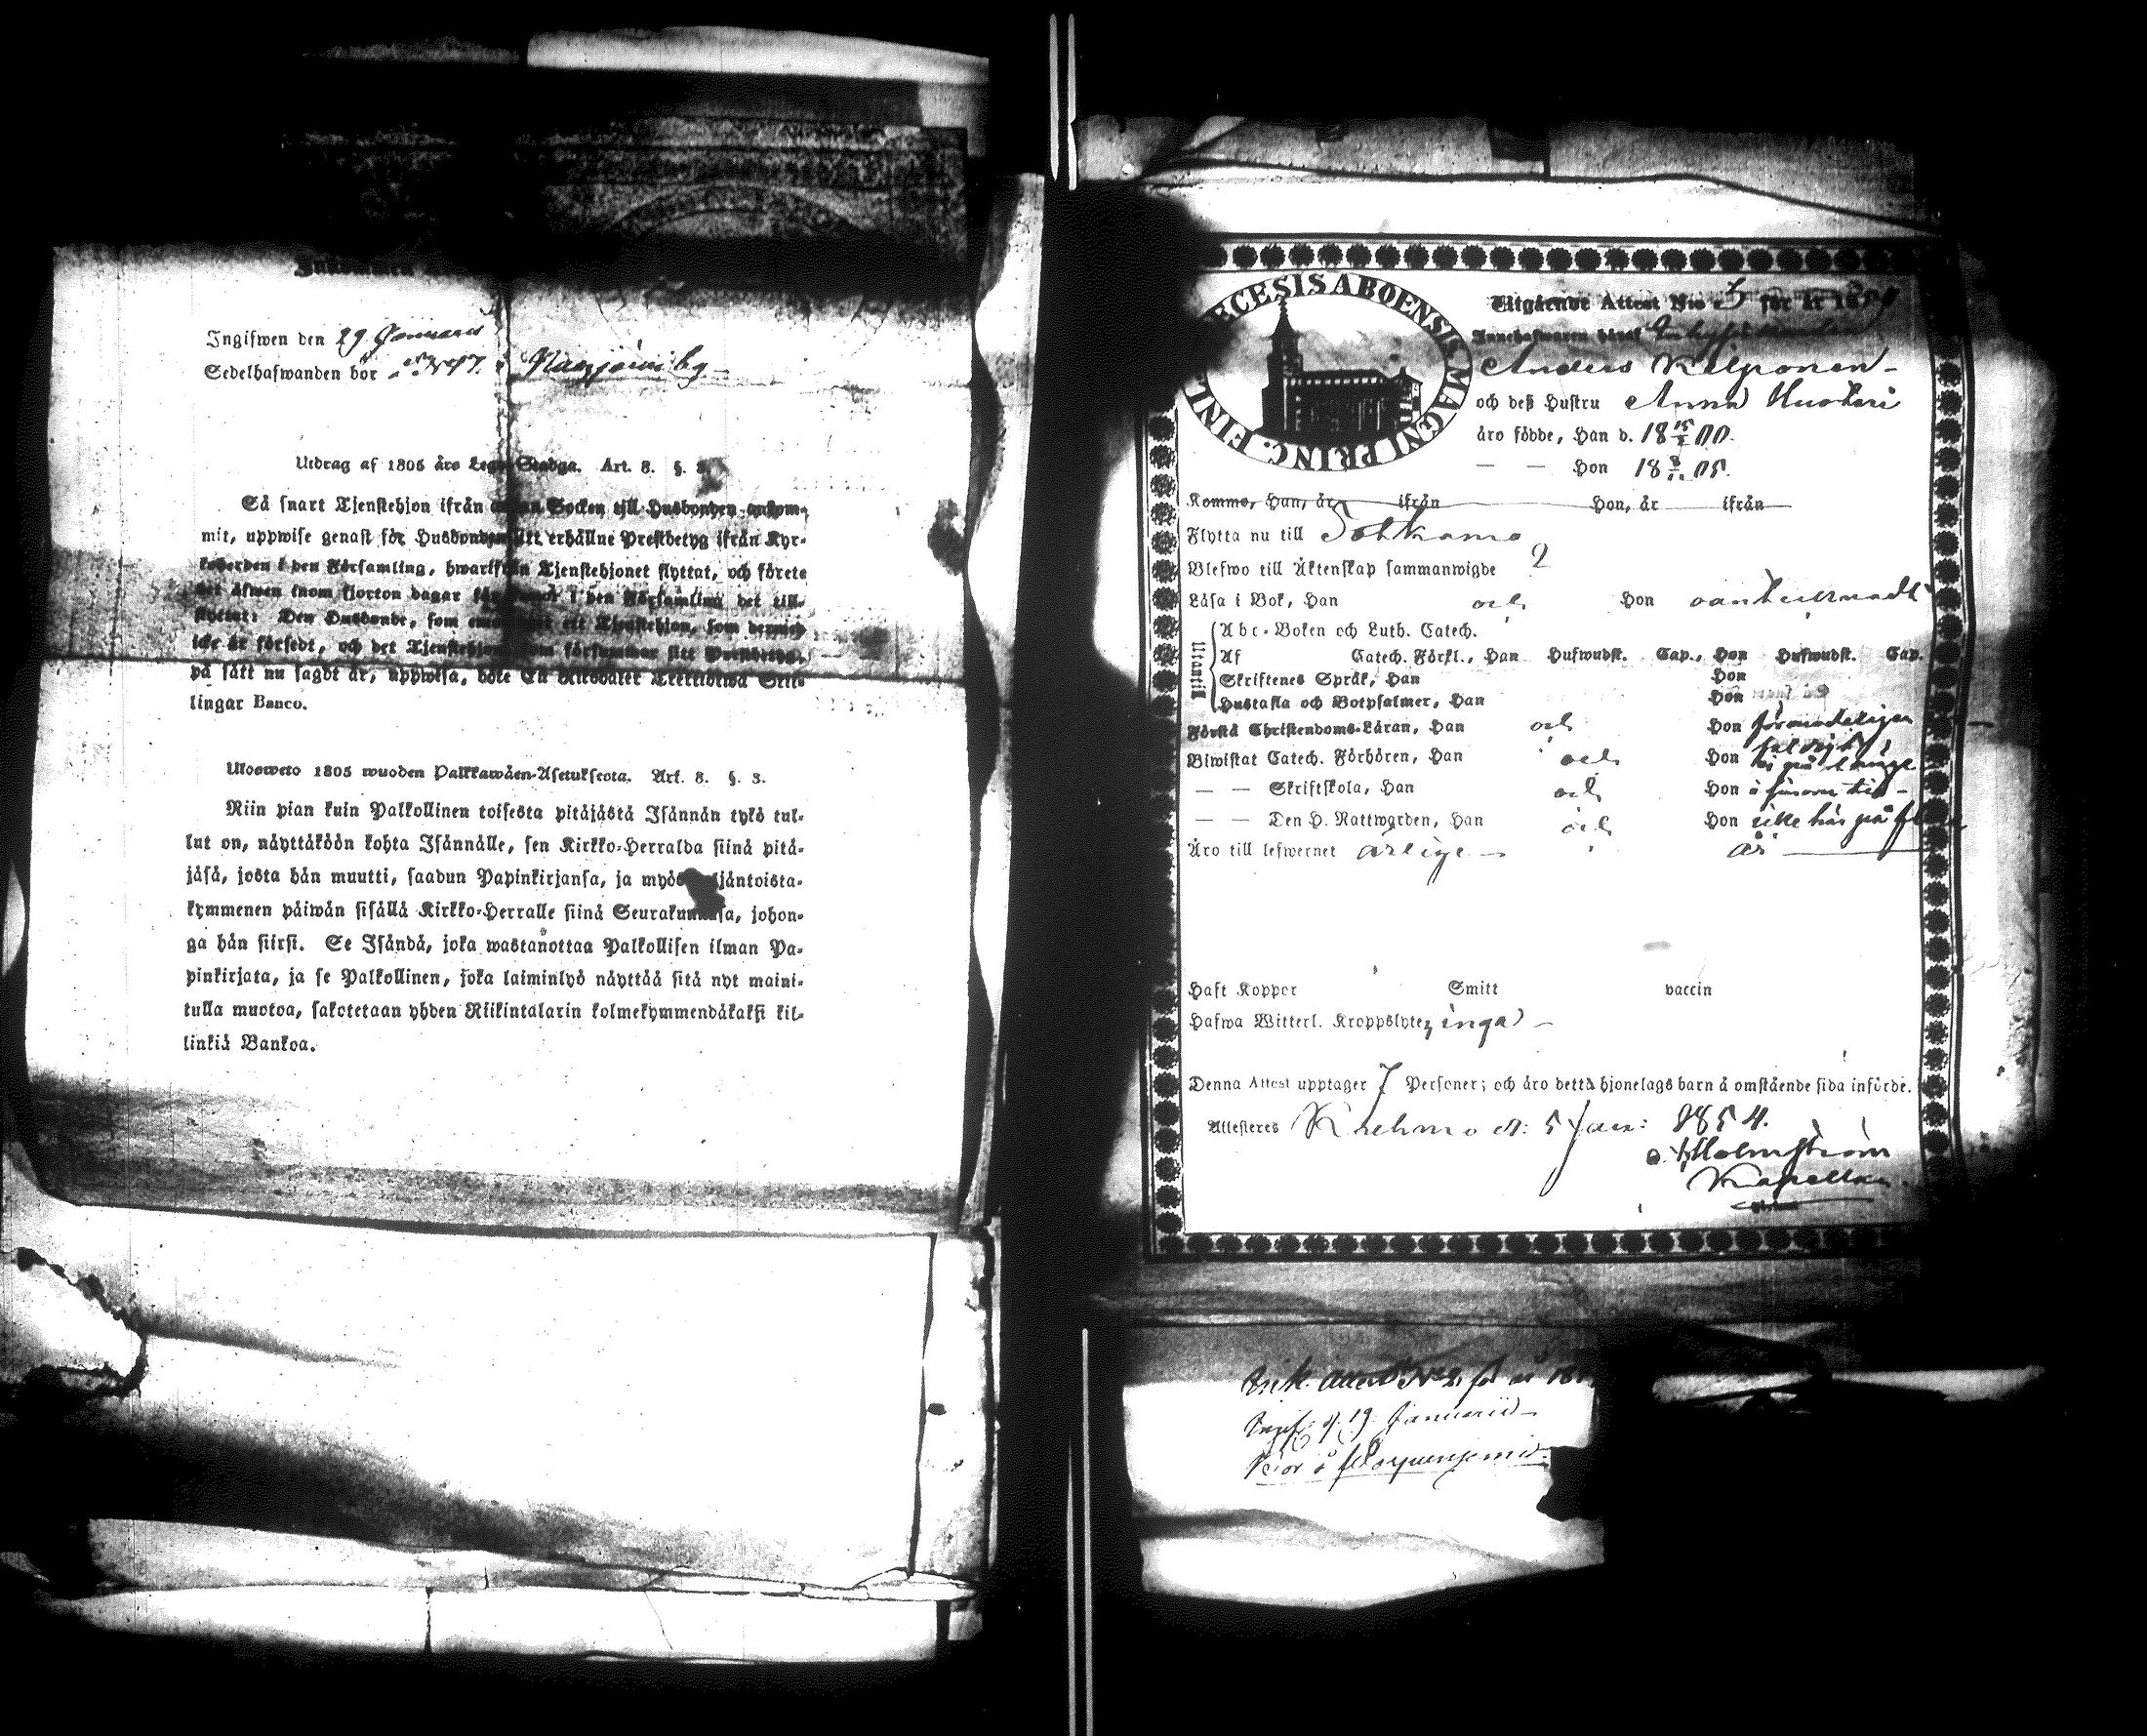 Ingifwen den 29 Januarii
Sedelhafwanden bör
Utdrag af 1805 års Lego-Stadga. Art. 8. §.
Så snart Tjenstehjon ifrån annan Socken till Husbonden ankom-
mit, uppwise genast för Husbonden sitt erhållne Prestbetyg ifrån Kyr-
koherden i den Församling, hwarifrån Tjenstehjonet flyttat, och förete
det äfwen inom fjorton dagar i den Församling det till-
flyttat: Den Husbonde, som ett Tjenstehjon, som dermed
icke är försedt, och det Tjenstehjon, som försummar sitt Prestbetyg,
på sätt nu sagdt är, uppwisa, böte En Riksdaler Trettiotwå Skil-
lingar Banco.
Ulosweto 1805 wuoden Palkkawäen-Asetuksesta. Art. 8. §. 3.
Niin pian kuin Palkollinen toisesta pitäjästä Isännän tykö tul-
lut on, näyttäköön kohta Isännälle, sen Kirkko-Herralda siinä pitä-
jäsä, josta hän muutti, saadun Papinkirjansa, ja myös neljäntoista-
kymmenen päiwän sisällä Kirkko-Herralle siinä Seurakunnasa, johon-
ga hän siirsi. Se Isändä, joka wastanottaa Palkollisen ilman Pa-
pinkirjata, ja se Palkollinen, joka laiminlyö näyttää sitä nyt maini-
tulla muotoa, sakotetaan yhden Riikintalarin kolmekymmendäkaksi kil-
linkiä Bankoa.
DIOECESIS ABOENSIS MAGNI PRINC. FINL.
Utgående Attest No 5 för år 1854
Innehafwaren häraf
Anders Kelponen
och deß Hustru Anna Huotari
äro födde, Han d. 18 15/ 00.
— — Hon 18 8/ 05.
Komme, Han, år ifrån Hon, år ifrån
Flytta nu till Sotkamo
Blefwo till Äktenskap sammanwigde
Läsa i Bok, Han och Hon
Utantill
Abc-Boken och Luth. Catech.
Af Catech. Förkl., Han Hufwudst. Cap., Hon Hufwudst. Cap.
Skriftenes Språk, Han Hon
Hustafla och Botpsalmer, Han Hon
Förstå Christendoms-Läran, Han och Hon
Biwistat Catech. Förhören, Han och Hon
— — Skriftskola, Han och Hon
— — Den H. Nattwarden, Han och Hon icke här på
Äro till lefwernet ärlige
Haft Koppor Smitt vaccin
Hafwa Witterl. Kroppslyte, inga
Denna Attest upptager 7 Personer; och äro detta hjonelags barn å omstående sida införde.
Attesteras Kuhmo d: 5 Jan: 1854.
Holmström
Kapellan
Attest No 2 för år
Ingif. d. 19 Januarii